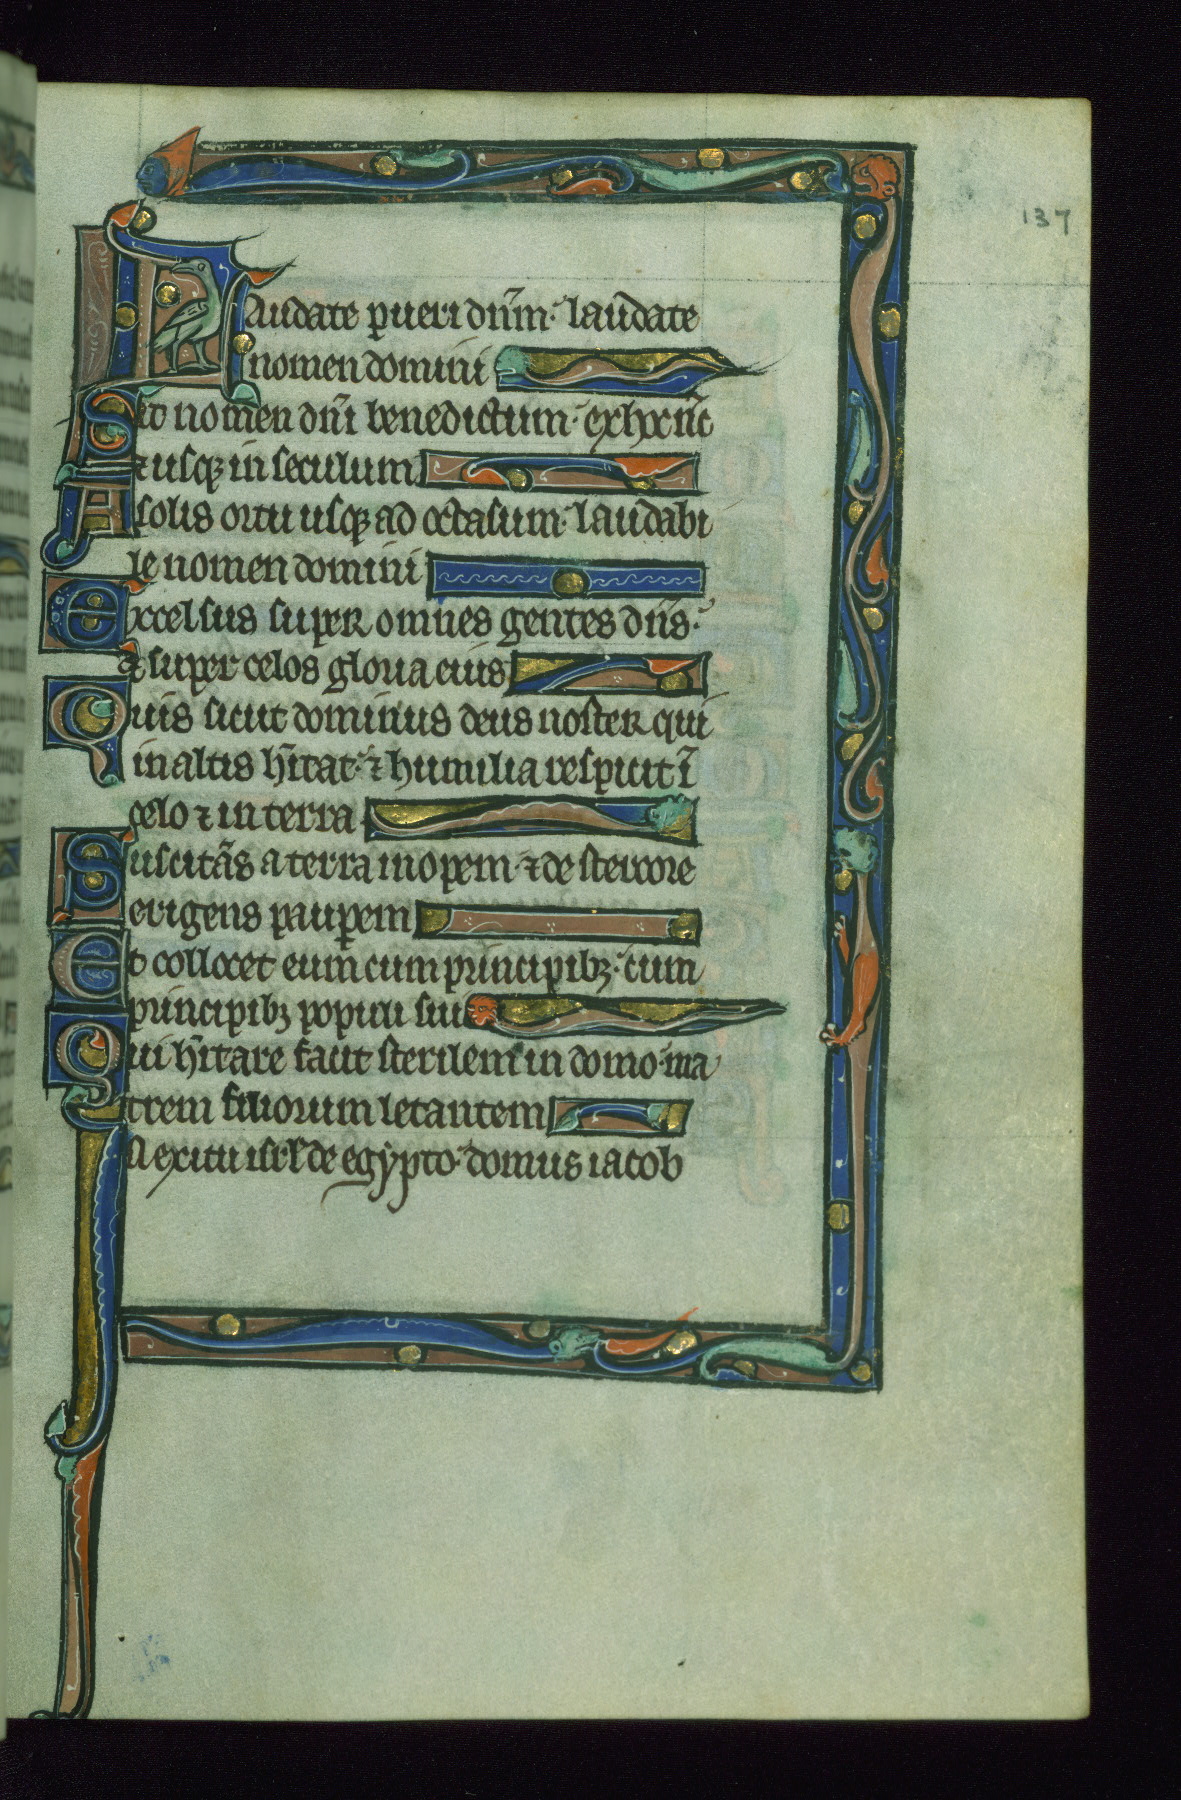 137
Laudate pueri dn̄m· laudate
nomen domini
Sit nomen dn̄i benedictum· ex hoc nc̄
⁊ usqꝫ in seculum
A solis ortu usqꝫ ad occasum· laudabi
le nomen domini
Excelsus super omnes gentes dn̄s·
et super celos gloria eius
Quis sicut dominus deus noster qui
in altis hītat· ⁊ humilia respicit ī
celo ⁊ in terra
Suscitās a terra inopem· ⁊ de stercore
erigens pauꝑem
Et collocet eum cum principibꝫ· cum
principibꝫ populi sui
Qui hītare facit sterilem in domo· ma
trem filiorum letantem
In exitu isrl̄ de egypto· domus iacob